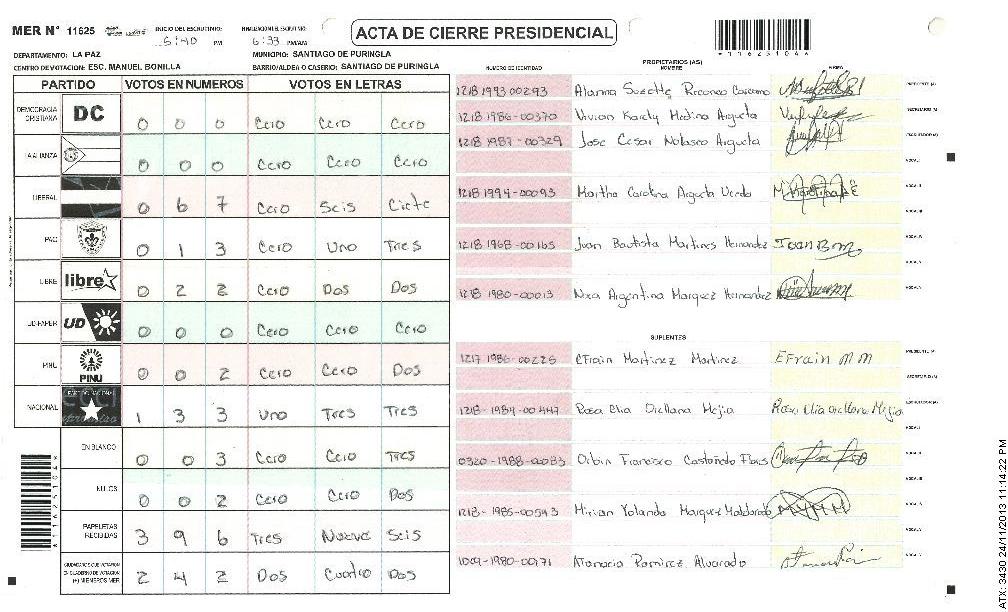 MER N° 11625 INICIO DEL ESCRUTINIO: 5:40 PM FINALIZACION EL ESCRUTINIO: 6:33 PM/AM
ACTA DE CIERRE PRESIDENCIAL
DEPARTAMENTO: LA PAZ MUNICIPIO: SANTIAGO DE PURINGLA
CENTRO DE VOTACION: ESC. MANUEL BONILLA BARRIO/ALDEA O CASERIO: SANTIAGO DE PURINGLA
PARTIDO VOTOS EN NUMEROS VOTOS EN LETRAS
DEMOCRACIA CRISTIANA DC 0 0 0 Cero Cero Cero
LA ALIANZA 0 0 0 Cero Cero Cero
LIBERAL 0 6 7 Cero Seis Ciete
PAC 0 1 3 Cero Uno Tres
LIBRE libre 0 2 2 Cero Dos Dos
UD-FAPER UD 0 0 0 Cero Cero Cero
PINU PINU 0 0 2 Cero Cero Dos
NACIONAL 1 3 3 Uno Tres Tres
EN BLANCO 0 0 3 Cero Cero Tres
NULOS 0 0 2 Cero Cero Dos
PAPELETAS RECIBIDAS 3 9 6 Tres Nueve Seis
CIUDADANOS QUE VOTARON EN CUADERNO DE VOTACION (+) MIEMBROS MER 2 4 2 Dos Cuatro Dos
PROPIETARIOS (AS)
NUMERO DE IDENTIDAD NOMBRE FIRMA
1218 1993 00293 Suzette PRESIDENTE (A)
1218-1986-00370 Vivian Karely Medina Argueta SECRETARIO (A)
1218 1987-00329 Jose Cesar Nolasco Argueta ESCRUTADOR (A)
VOCAL I
1218 1994-00093 Martha Carolina Argueta VOCAL II
VOCAL III
1218-1968-00165 Juan Bautista Martines Hernandez Juan B M
1218 1980-00013 Argentina Marquez Hernandez VOCAL V
SUPLENTES
1217-1986-00225 Efrain Martinez Martinez EFrain M M PRESIDENTE (A)
SECRETARIO (A)
1218-1984-00447 Rosa Elia Orellana Mejia Rosa Elia orellana Mejia ESCRUTADOR (A)
VOCAL I
0320-1988-00083 Orbin Francisco Castañeda Flores VOCAL II
VOCAL III
1218-1985-00543 Mirian Yolanda Marquez Maldonado VOCAL IV
1009-1980-00171 Atanacia Ramirez Alvarado VOCAL V
*116251044*
ATX: 3430 24/11/2013 11:14:22 PM